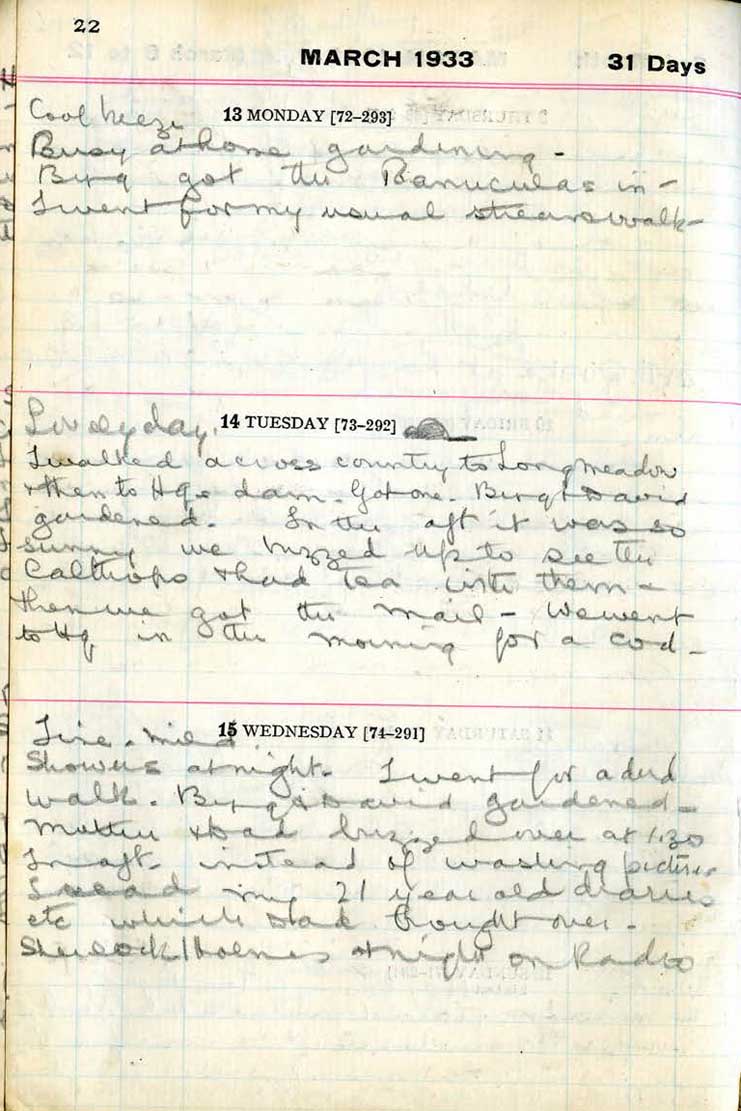 22
MARCH 1933 31 Days
13 MONDAY [72–293]
Cool breeze
Busy at home gardening -
got the Ranuculas in -
I went for my usual walk -
14 TUESDAY [73–292]
Lovely day.
I walked across country to Longmeadow
& then to Hqs dam. Got one. & David
gardened. In the aft it was so
sunny we buzzed up to see the
Calthrops & had tea with them -
then we got the mail - We went
to Hq in the morning for a cod -
15 WEDNESDAY [74–291]
Fine. mild.
Showers at night. I went for a
walk. & David gardened -
Mother & Dad buzzed over at 1.30
In aft. instead of washing pictures
I read my 21 year old diaries
etc which Dad brought over.
Sherlock Holmes at night on Radio